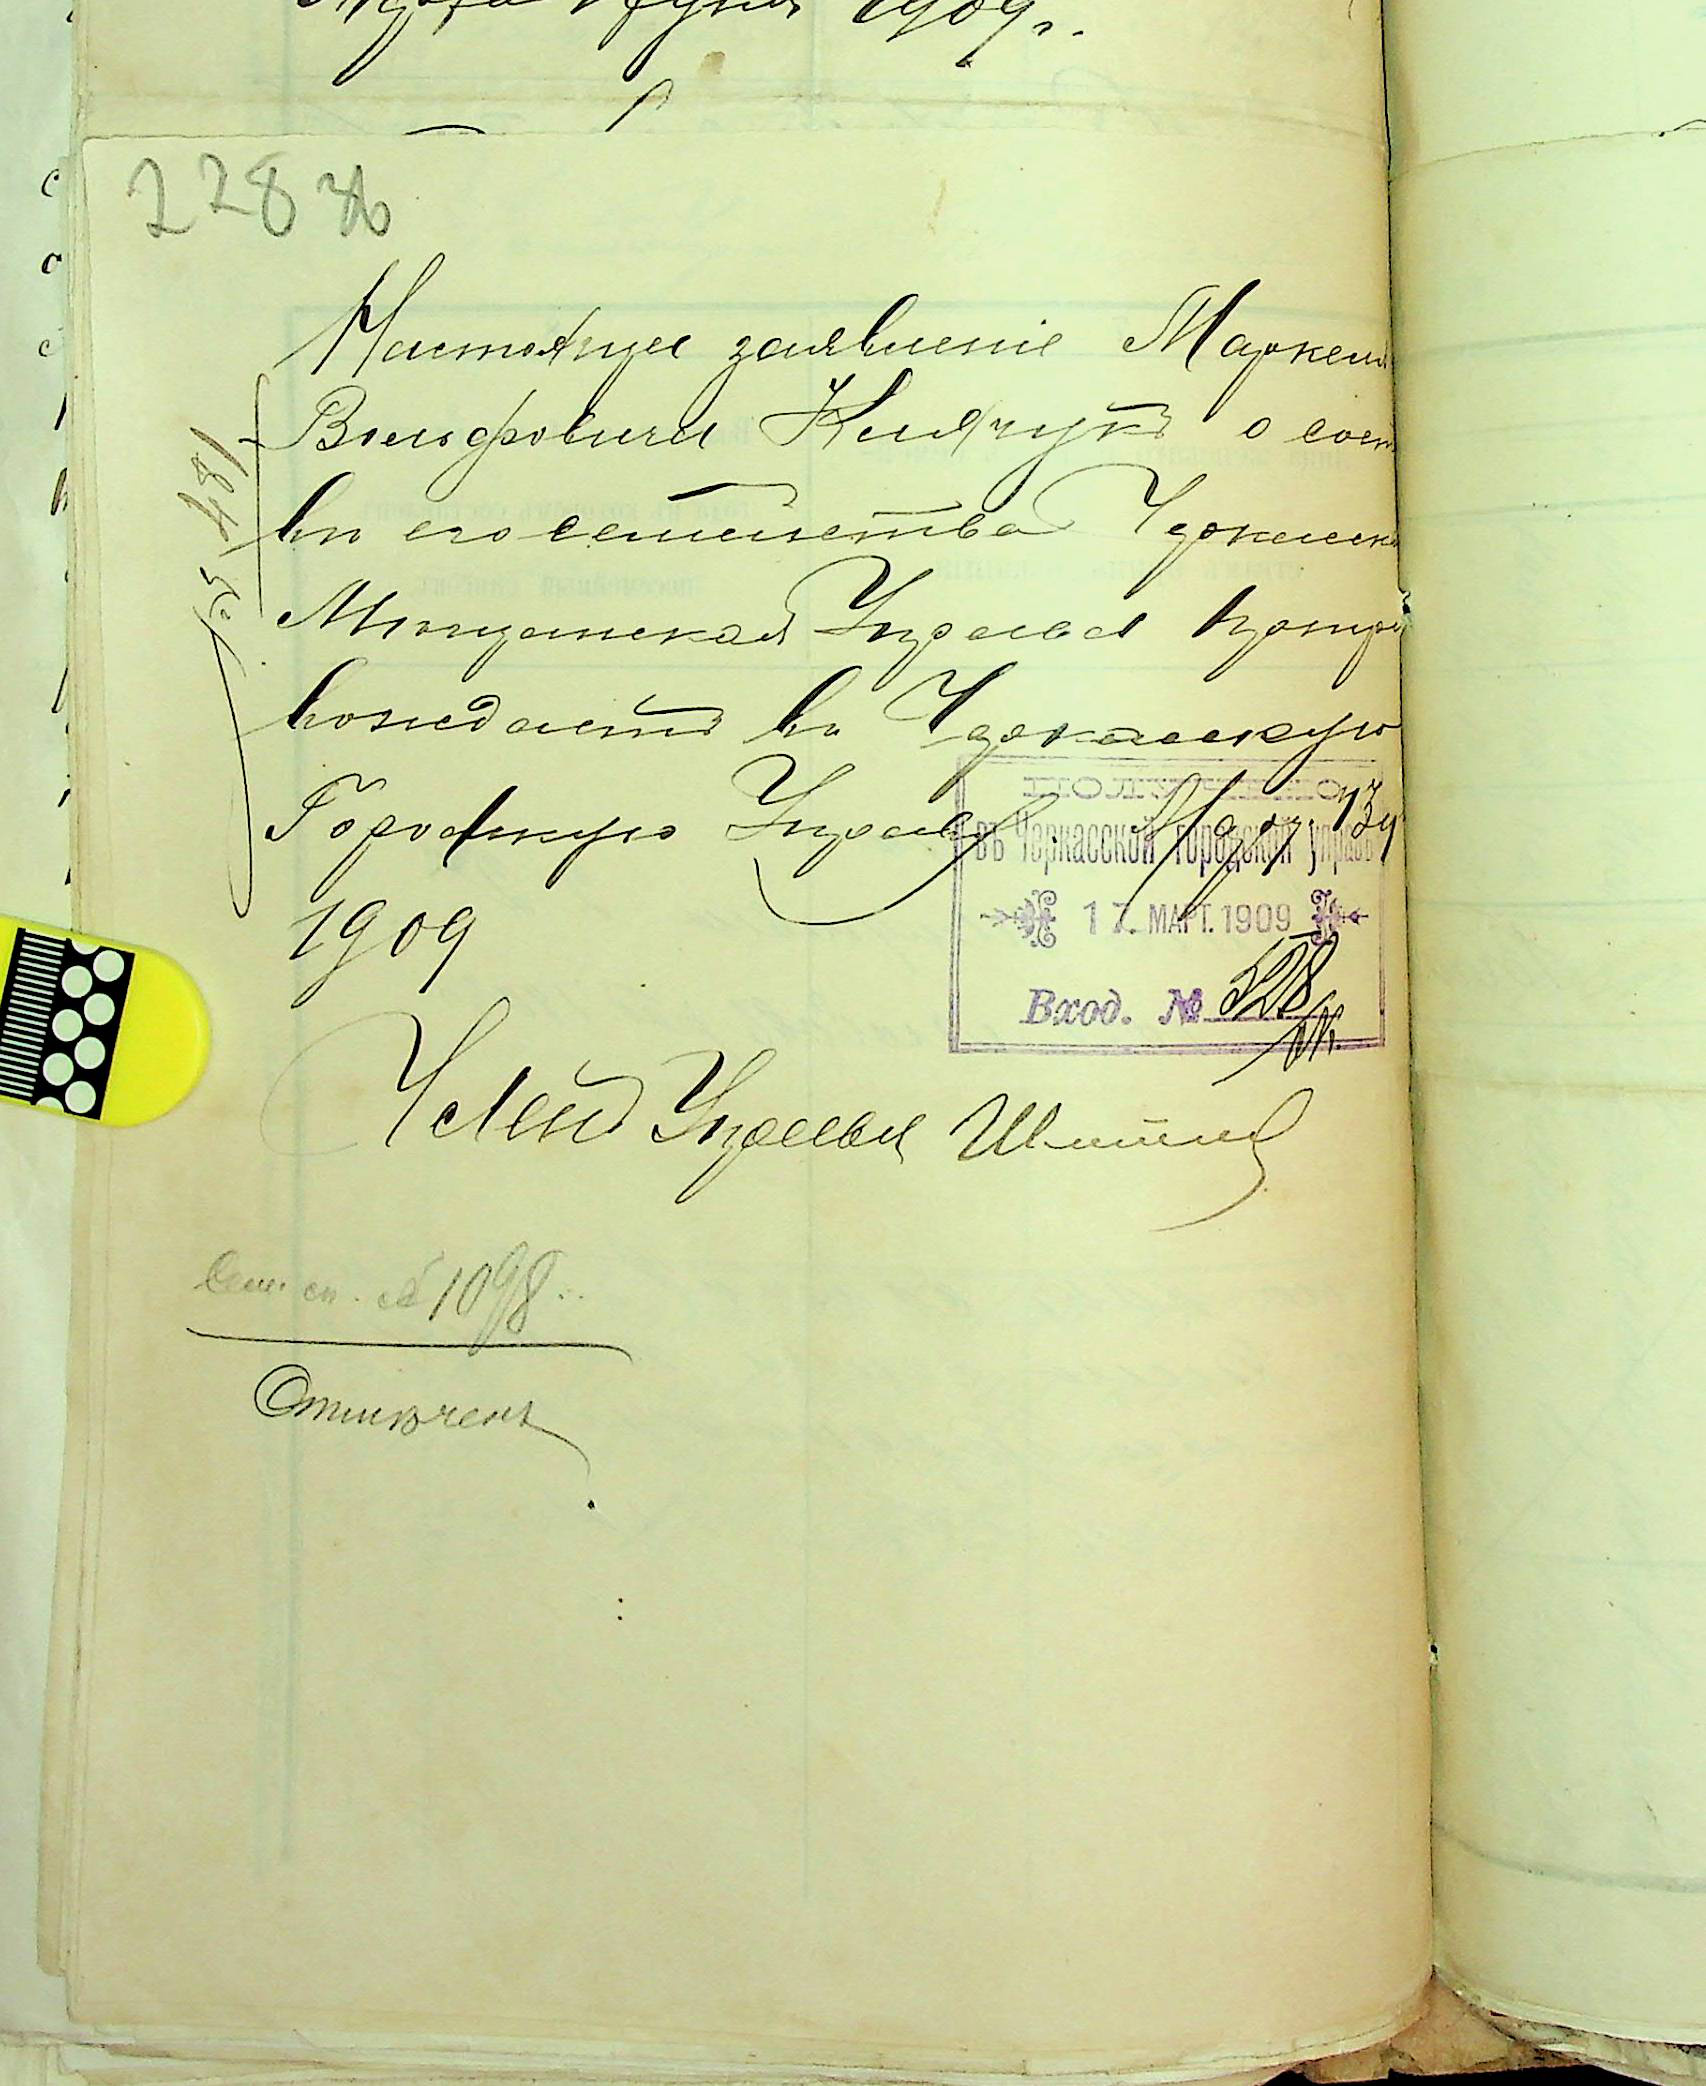 1909 г.
228 зв
Настоящее заявленіе Маркел
Вольфовича Клячукъ о сост
вѣ его семейства Черкасск
Мѣщанская Управа препро
вождаетъ въ Черкасскую
Городскую Управу. Марта 13 д
1909
№ 481
ПОЛУЧЕНО
въ Черкасской городской управѣ
17. МАРТ. 1909
Вход. № 528
Членъ Управы
Сем. сп. № 1098
Отмѣченъ